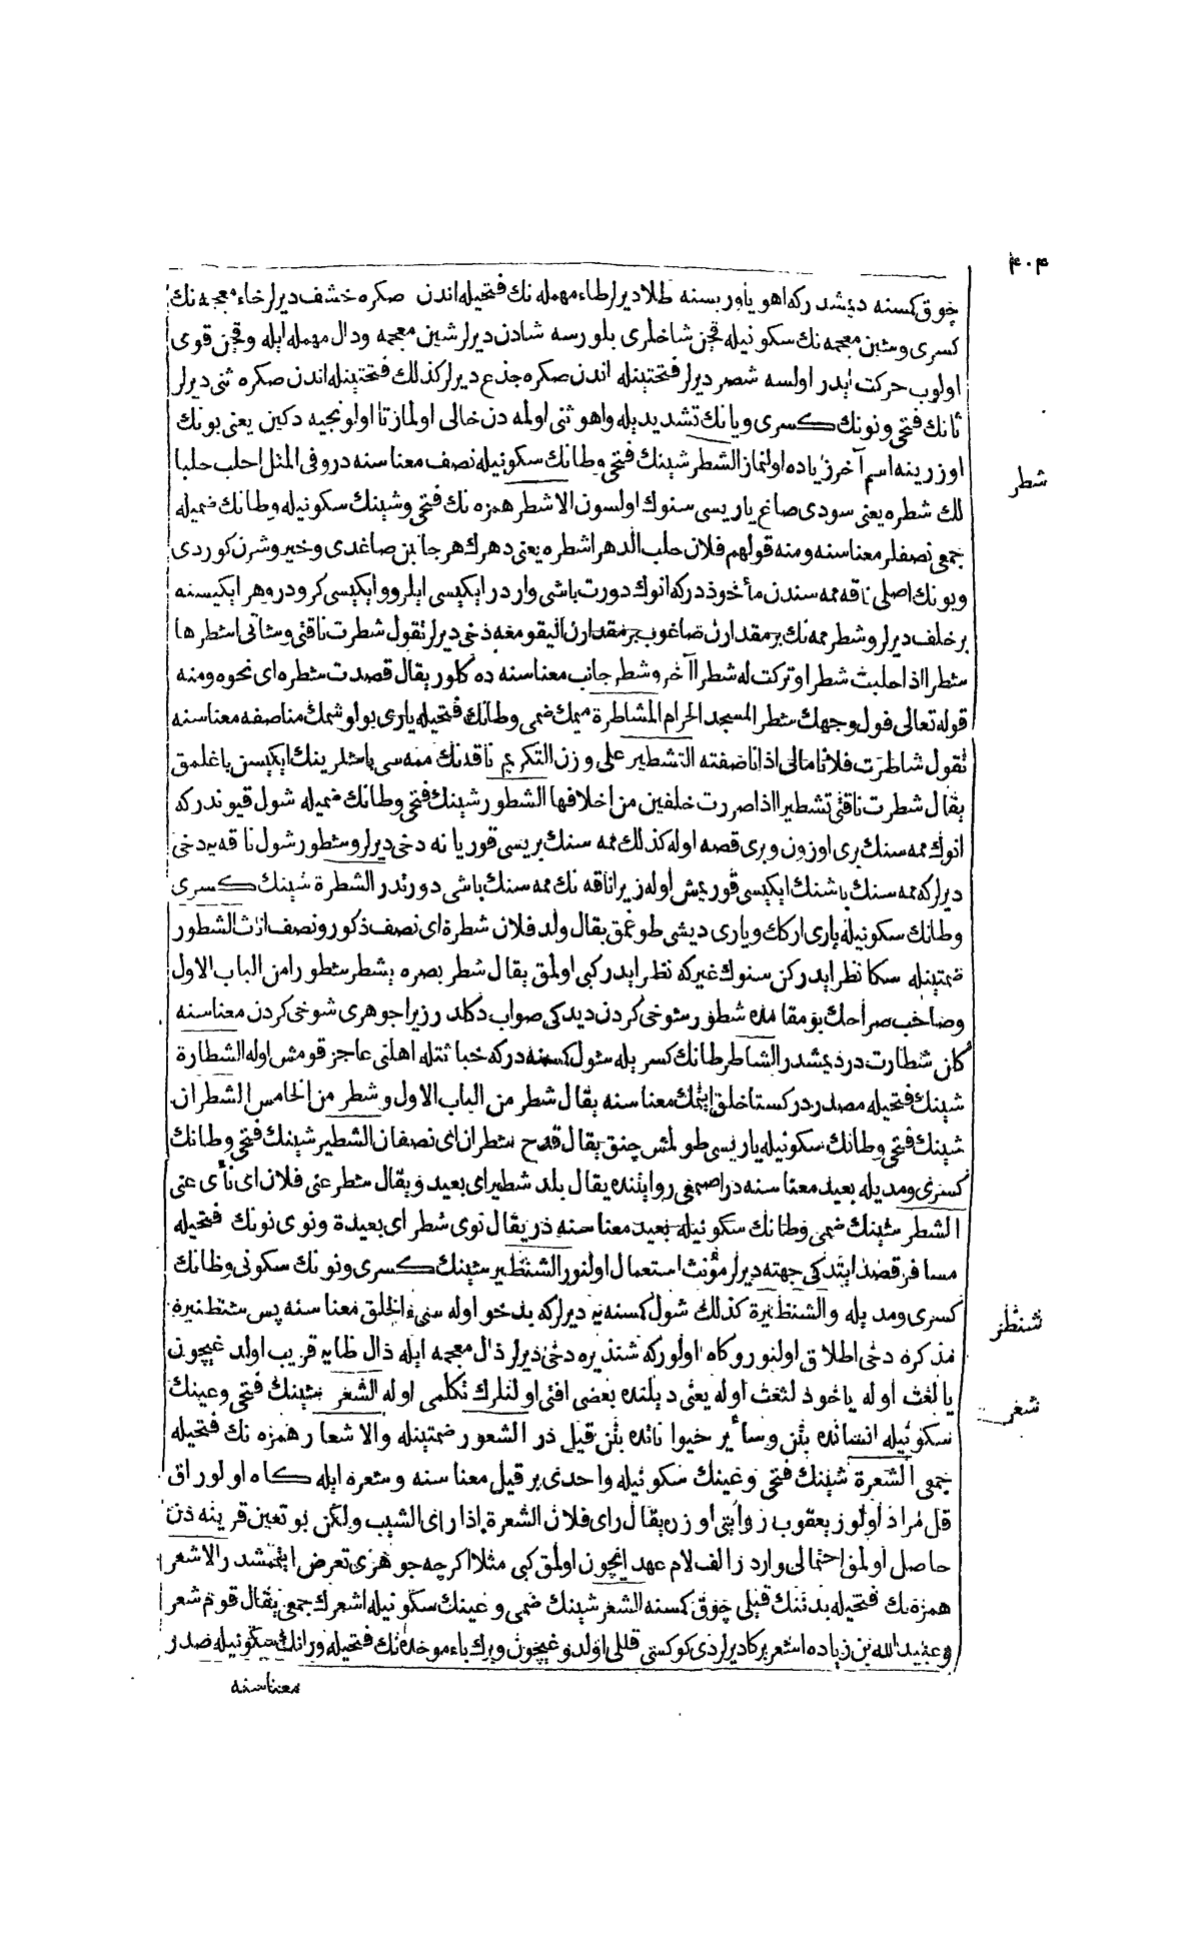 ۴۰۴
چوق كمسنه ديمشدر كه اهو ياوريسنه طلا ديرلر طاء مهمله نك فتحيله اندن صكره خشف ديرلر خاء معجمه نك
كسرى وشين معجمه نك سكونيله قچن شاخلرى بلورسه شادن ديرلر شين معجمه ودال مهمله ايله وقچن قوى
اولوب حركت ايدر اولسه شصر ديرلر فتحتينله اندن صكره جذع ديرلر كذلك فتحتينله اندن صكره ثنى ديرلر
ثانك فتحى ونونك كسرى ويانك تشديديله واهو ثنى اولمه دن خالى اولماز تا اولونجيه دكين يعنى بونك
اوزرينه اسم آخر زياده اولنماز الشطر شينك فتحى وطانك سكونيله نصف معناسنه در وفى المثل احلب حلبا
شطر
لك شطره يعنى سودى صاغ ياريسى سنوك اولسون الاشطر همزه نك فتحى وشينك سكونيله وطانك ضميله
جمعى نصفلر معناسنه ومنه قولهم فلان حلب الدهر اشطره يعنى دهرك هر جانبن صاغدى وخير وشرن كوردى
وبونك اصلى ناقه ممه سندن مأخوذدر كه انوك دورت باشى واردر ايكيسى ايلرو وايكيسى كرودر وهر ايكيسنه
بر خلف ديرلر وشطر ممه نك بر مقدارن صاغوب بر مقدارن اليقومغه دخى ديرلر تقول شطرت ناقتى وشاتى اشطرها
شطرا اذا حلبت شطرا وتركت له شطرا آخر وشطر جانب معناسنه ده كلور يقال قصدت شطره اى نحوه ومنه
قوله تعالى فول وجهك شطر المسجد الحرام المشاطرة ميمك ضمى وطانك فتحيله يارى بولوشمك مناصفه معناسنه
تقول شاطرت فلانا مالى اذا ناصفته التشطير على وزن التكريم ناقه نك ممه سى باشلرينك ايكيسن باغلمق
يقال شطرت ناقتى تشطيرا اذا صررت خلفين من اخلافها الشطور شينك فتحى وطانك ضميله شول قيوندر كه
انوك ممه سنك برى اوزون وبرى قصه اوله كذلك ممه سنك بريسى قوريانه دخى ديرلر وشطور شول ناقه يه دخى
ديرلر كه ممه سنك باشنك ايكيسى قوريمش اوله زيرا ناقه نك ممه سنك باشى دورتدر الشطرة شينك كسرى
وطانك سكونيله يارى اركك ويارى ديشى طوغمق يقال ولد فلان شطرة اى نصف ذكور ونصف اناث الشطور
ضمتينله سكا نظر ايدركن سنوك غيركه نظر ايدر كبى اولمق يقال شطر بصره يشطر شطورا من الباب الاول
وصاحب صراحك بو مقامده شطور شوخى كردن ديدكى صواب دكلدر زيرا جوهرى شوخى كردن معناسنه
كان شطارت در ديمشدر الشاطر طانك كسريله شول كمسنه در كه خباثتله اهلنى عاجز قومش اوله الشطارة
شينك فتحيله مصدردر كستاخلق ايتمك معناسنه يقال شطر من الباب الاول وشطر من الخامس الشطران
شينك فتحى وطانك سكونيله ياريسى طولمش چنق يقال قدح شطران اى نصفان الشطير شينك فتحى وطانك
كسرى ومديله بعيد معناسنه در اصمعى روايتنده يقال بلد شطير اى بعيد ويقال شطر عنى فلان اى نأى عنى
الشطر شينك ضمى وطانك سكونيله بعيد معناسنه در يقال نوى شطر اى بعيدة ونوى نونك فتحيله
مسافر قصد ايتدكى جهته ديرلر مؤنث استعمال اولنور الشنظير شينك كسرى ونونك سكونى وظانك
كسرى ومديله والشنظيرة كذلك شول كمسنه يه ديرلر كه بدخو اوله سئ الخلق معناسنه پس شنظيره
شنظر
مذكره دخى اطلاق اولنور وكاه اولور كه شنذيره دخى ديرلر ذال معجمه ايله ذال ظايه قريب اولدغيچون
يا لغت اوله ياخود لثغت اوله يعنى ديلنده بعضى افتى اولنلرك تكلمى اوله الشعر شينك فتحى وعينك
شعر
سكونيله انسانده بتن وسائر حيواناتده بتن قيلدر الشعور ضمتينله والاشعار همزه نك فتحيله
جمعى الشعرة شينك فتحى وعينك سكونيله واحدى بر قيل معناسنه وشعره ايله كاه اولور اق
قل مراد اولور يعقوب روايتى اوزره يقال راى فلان الشعرة اذا راى الشيب ولكن بو تعين قرينه دن
حاصل اولمق احتمالى واردر الف لام عهد ايچون اولمق كبى مثلا اكرچه جوهرى تعرض ايتممشدر الاشعر
همزه نك فتحيله بدننك قيلى چوق كمسنه الشعر شينك ضمى وعينك سكونيله اشعرك جمعى يقال قوم شعر
وعبيد الله بن زياده اشعر بركا ديرلردى كوكسى قللى اولدوغيچون وبرك باء موحده نك فتحيله ورانك سكونيله صدر
معناسنه